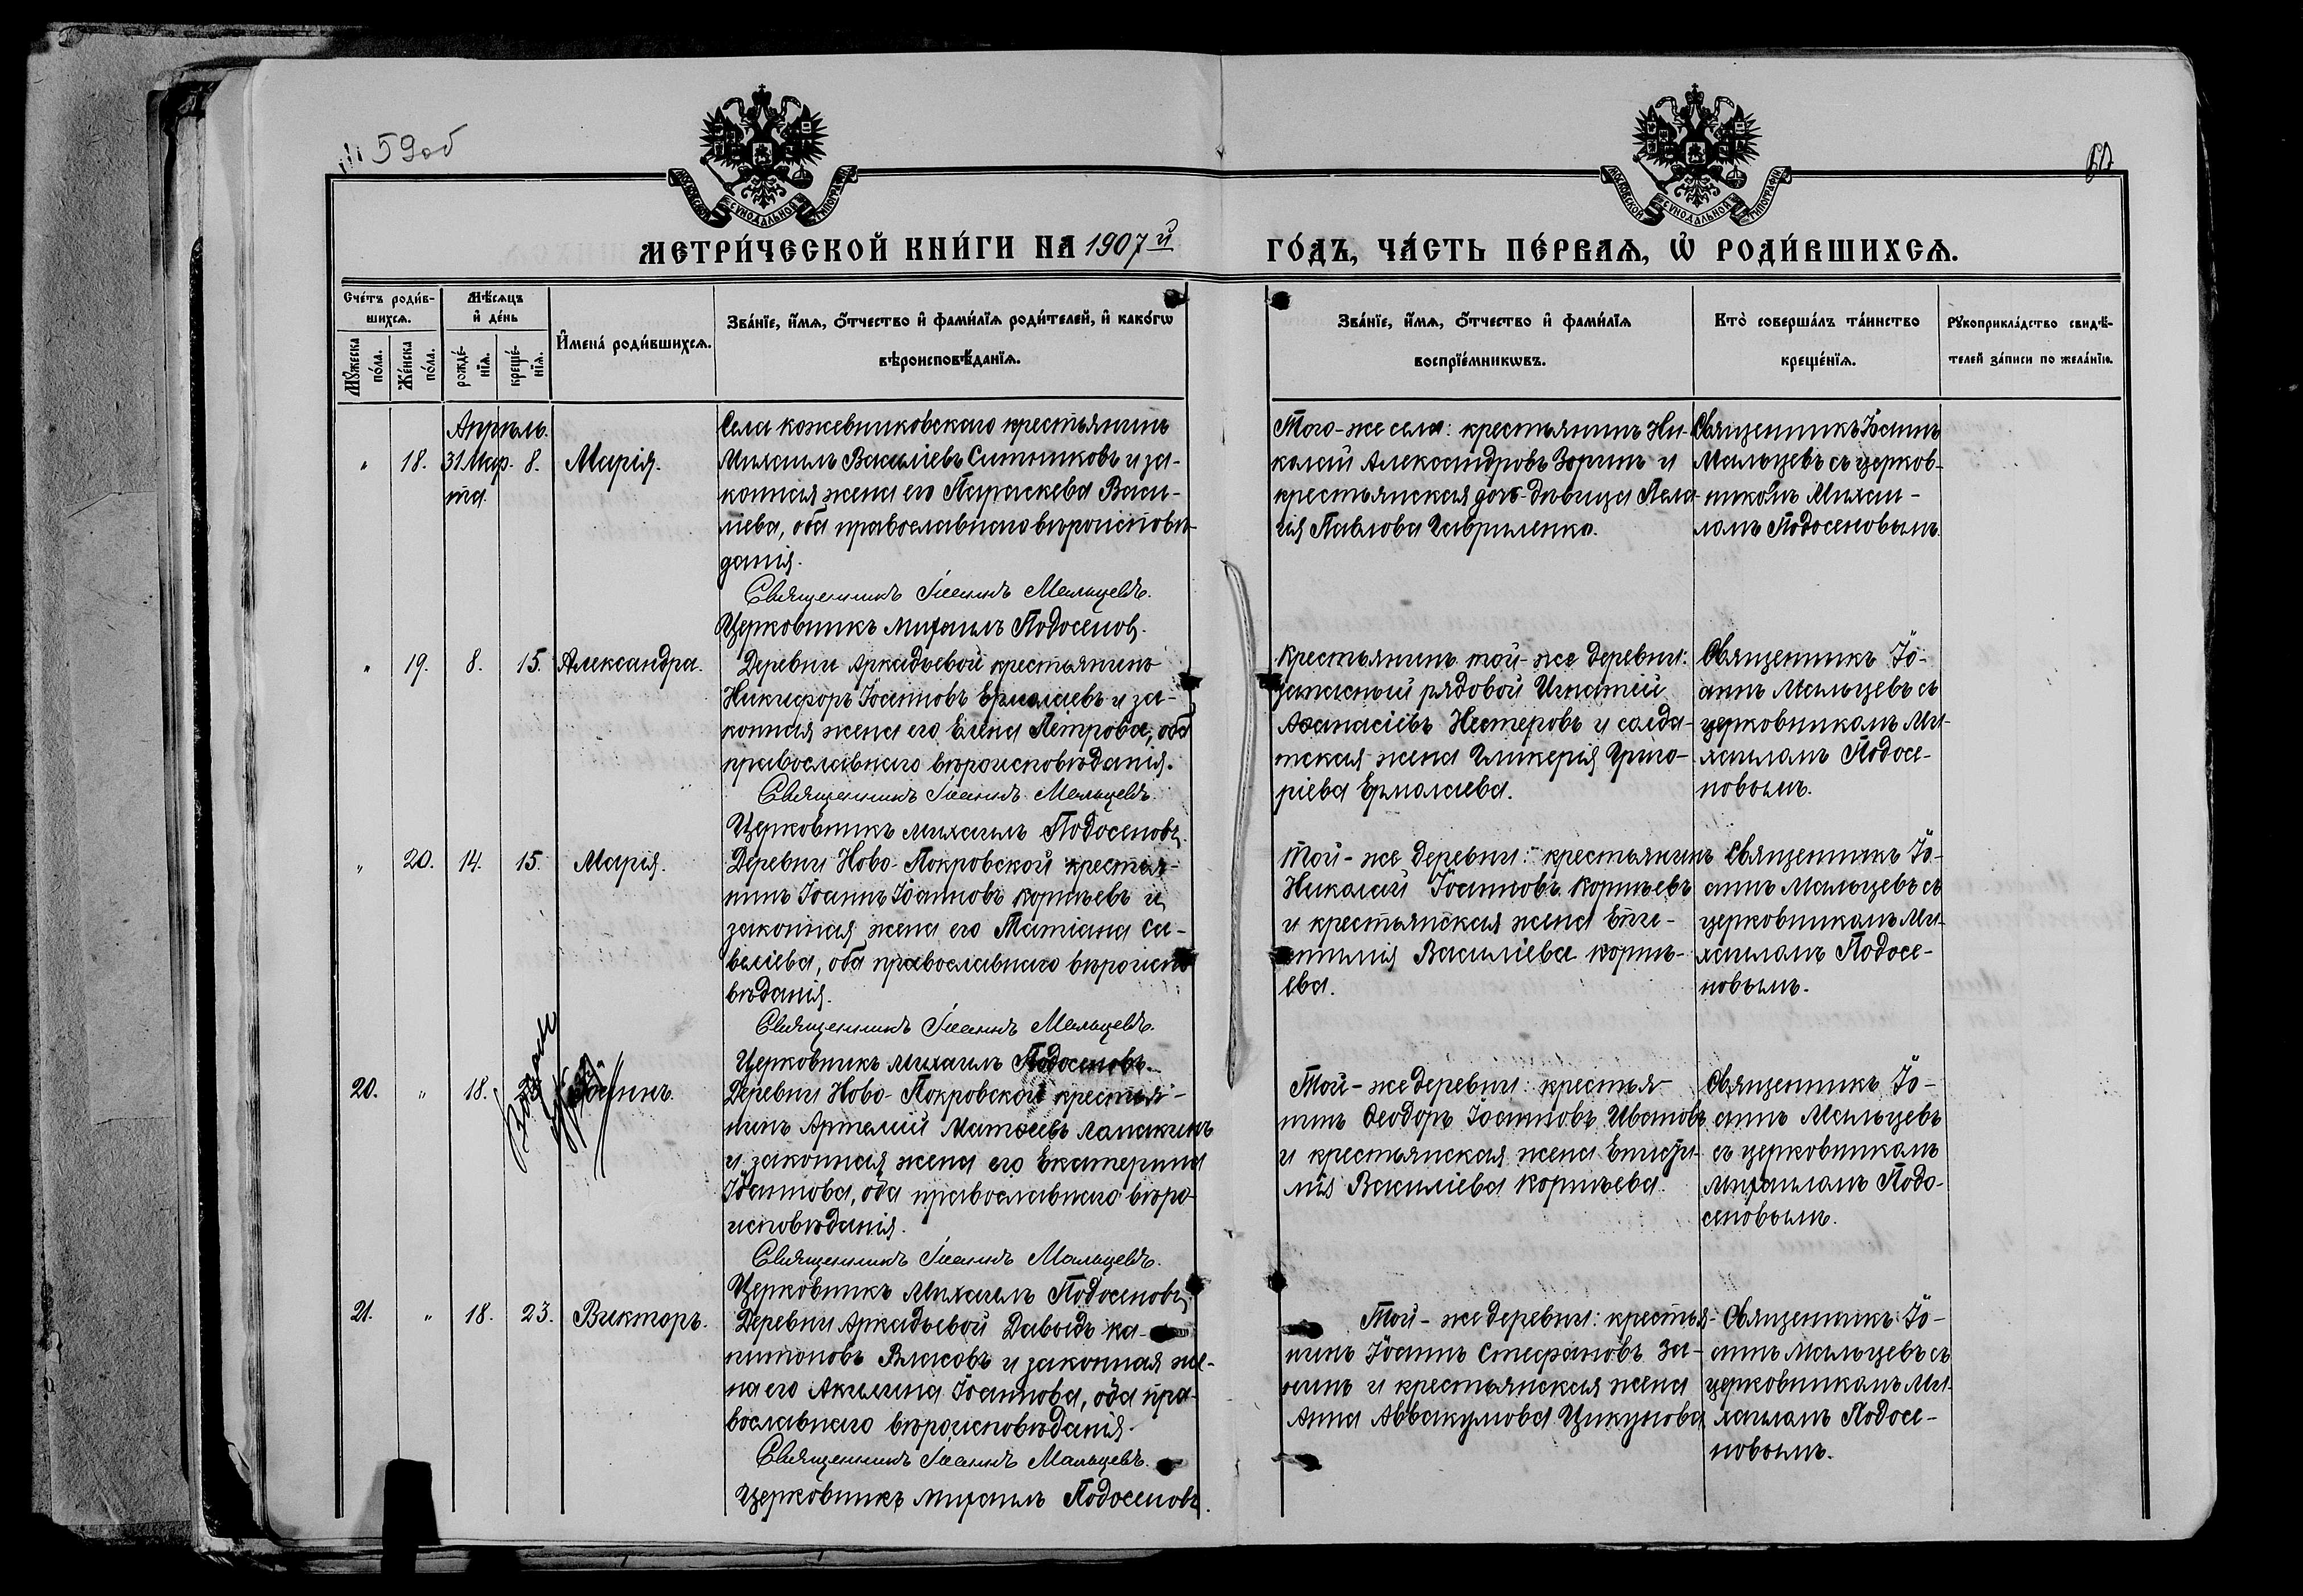 59об
60
МОСКОВСКОЙ СУНОДАЛЬНОЙ ТИПОГРАФІИ
МОСКОВСКОЙ СУНОДАЛЬНОЙ ТИПОГРАФІИ
МЕТРИ́ЧЕСКОЙ КНИ́ГИ НА 1907й
ГО́ДЪ, ЧА́СТЬ ПЕ́РВАѦ, Ѽ РОДИ́ВШИХСѦ.
Сче́тъ роди́в-
шихсѧ.
Мꙋ́жеска по́ла.
Же́нска по́ла.
Мѣ́сѧцъ
и҆ де́нь
рожде́-
нїѧ.
креще́-
нїѧ.
И҆мена̀ роди́вшихсѧ.
Зва́нїе, и҆́мѧ, ѻ҆́тчество и҆ фами́лїѧ роди́телей, и҆ како́гѡ
вѣроисповѣ́данїѧ.
Зва́нїе, и҆́мѧ, ѻ҆́тчество и҆ фами́лїѧ
воспрїе́мникѡвъ.
Кто̀ соверша́лъ та́инство
креще́нїѧ.
Рꙋкоприкла́дство свидѣ́-
телей за́писи по жела́нїю.
Апрѣль.
" 18. 31 Мар- 8. Марія.
та.
Села кожевниковскаго крестьянинъ
Михаилъ Василіевъ Ситниковъ и за-
конная жена его Параскева Васи-
ліева, оба православнаго вѣроисповѣ-
данія.
Священникъ Іоаннъ Мальцевъ.
Церковникъ Михаилъ Подосенов.
Того-же села: крестьянинъ Ни-
колай Александровъ Зоринъ и
крестьянская дочь-дѣвица Пела-
гія Павлова Гавриленко.
Священникъ Іоаннъ
Мальцевъ съ церков-
никомъ Михаи-
ломъ Подосеновымъ.
" 19. 8. 15. Александра.
Деревни Аркадьевой крестьянинъ
Никифоръ Іоанновъ Ермолаевъ и за-
конная жена его Елена Петрова, оба
православнаго вѣроисповѣданія.
Священникъ Іоаннъ Мальцевъ.
Церковникъ Михаилъ Подосеновъ.
Крестьянинъ той-же деревни:
запасный рядовой Игнатій
Аѳанасіевъ Нестеровъ и солда-
тская жена Гликерія Григо-
ріева Ермолаева.
Священникъ Іо-
аннъ Мальцевъ съ
церковникомъ Ми-
хаиломъ Подосе-
новымъ.
" 20. 14. 15. Марія.
Деревни Ново-Покровской крестья-
нинъ Іоаннъ Іоанновъ Корнѣевъ и
законная жена его Татіана Са-
веліева, оба православнаго вѣроиспо-
вѣданія.
Священникъ Іоаннъ Мальцевъ.
Церковникъ Михаилъ Подосеновъ.
Той-же деревни: крестьянинъ
Николай Іоанновъ Корнѣевъ
и крестьянская жена
Василіева Корнѣ-
ева.
Священникъ Іо-
аннъ Мальцевъ съ
церковникомъ Ми-
хаиломъ Подосе-
новымъ.
20. " 18. Іоаннъ.
Деревни Ново-Покровской крестья-
нинъ Артемій Матѳеевъ Лапакинъ
и законная жена его Екатерина
Іоаннова, оба православнаго вѣро-
исповѣданія.
Священникъ Іоаннъ Мальцевъ.
Церковникъ Михаилъ Подосеновъ.
Той-же деревни: крестья-
нинъ Ѳеодоръ Іоанновъ Ивановъ
и крестьянская жена Епифи-
мія Василіева Корнѣева.
Священникъ Іо-
аннъ Мальцевъ
съ церковникомъ
Михаиломъ Подо-
сеновымъ.
21. " 18. 23. Викторъ.
Деревни Аркадьевой Давыдъ Ка-
питоновъ Власовъ и законная же-
на его Акилина Іоаннова, оба пра-
вославнаго вѣроисповѣданія.
Священникъ Іоаннъ Мальцевъ.
Церковникъ Михаилъ Подосеновъ.
Той-же деревни: крестья-
нинъ Іоаннъ Стефановъ За-
и крестьянская жена
Анна Аввакумова Цикунова.
Священникъ Іо-
аннъ Мальцевъ съ
церковникомъ Ми-
хаиломъ Подосе-
новымъ.